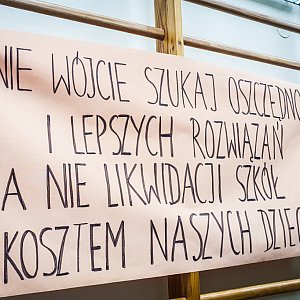 NIE WÓJCIE SZUKAJ OSZCZĘDNO
I LEPSZYCH ROZWIĄZAŃ
A NIE LIKWIDACJI SZKÓŁ
KOSZTEM NASZYCH DZIEC